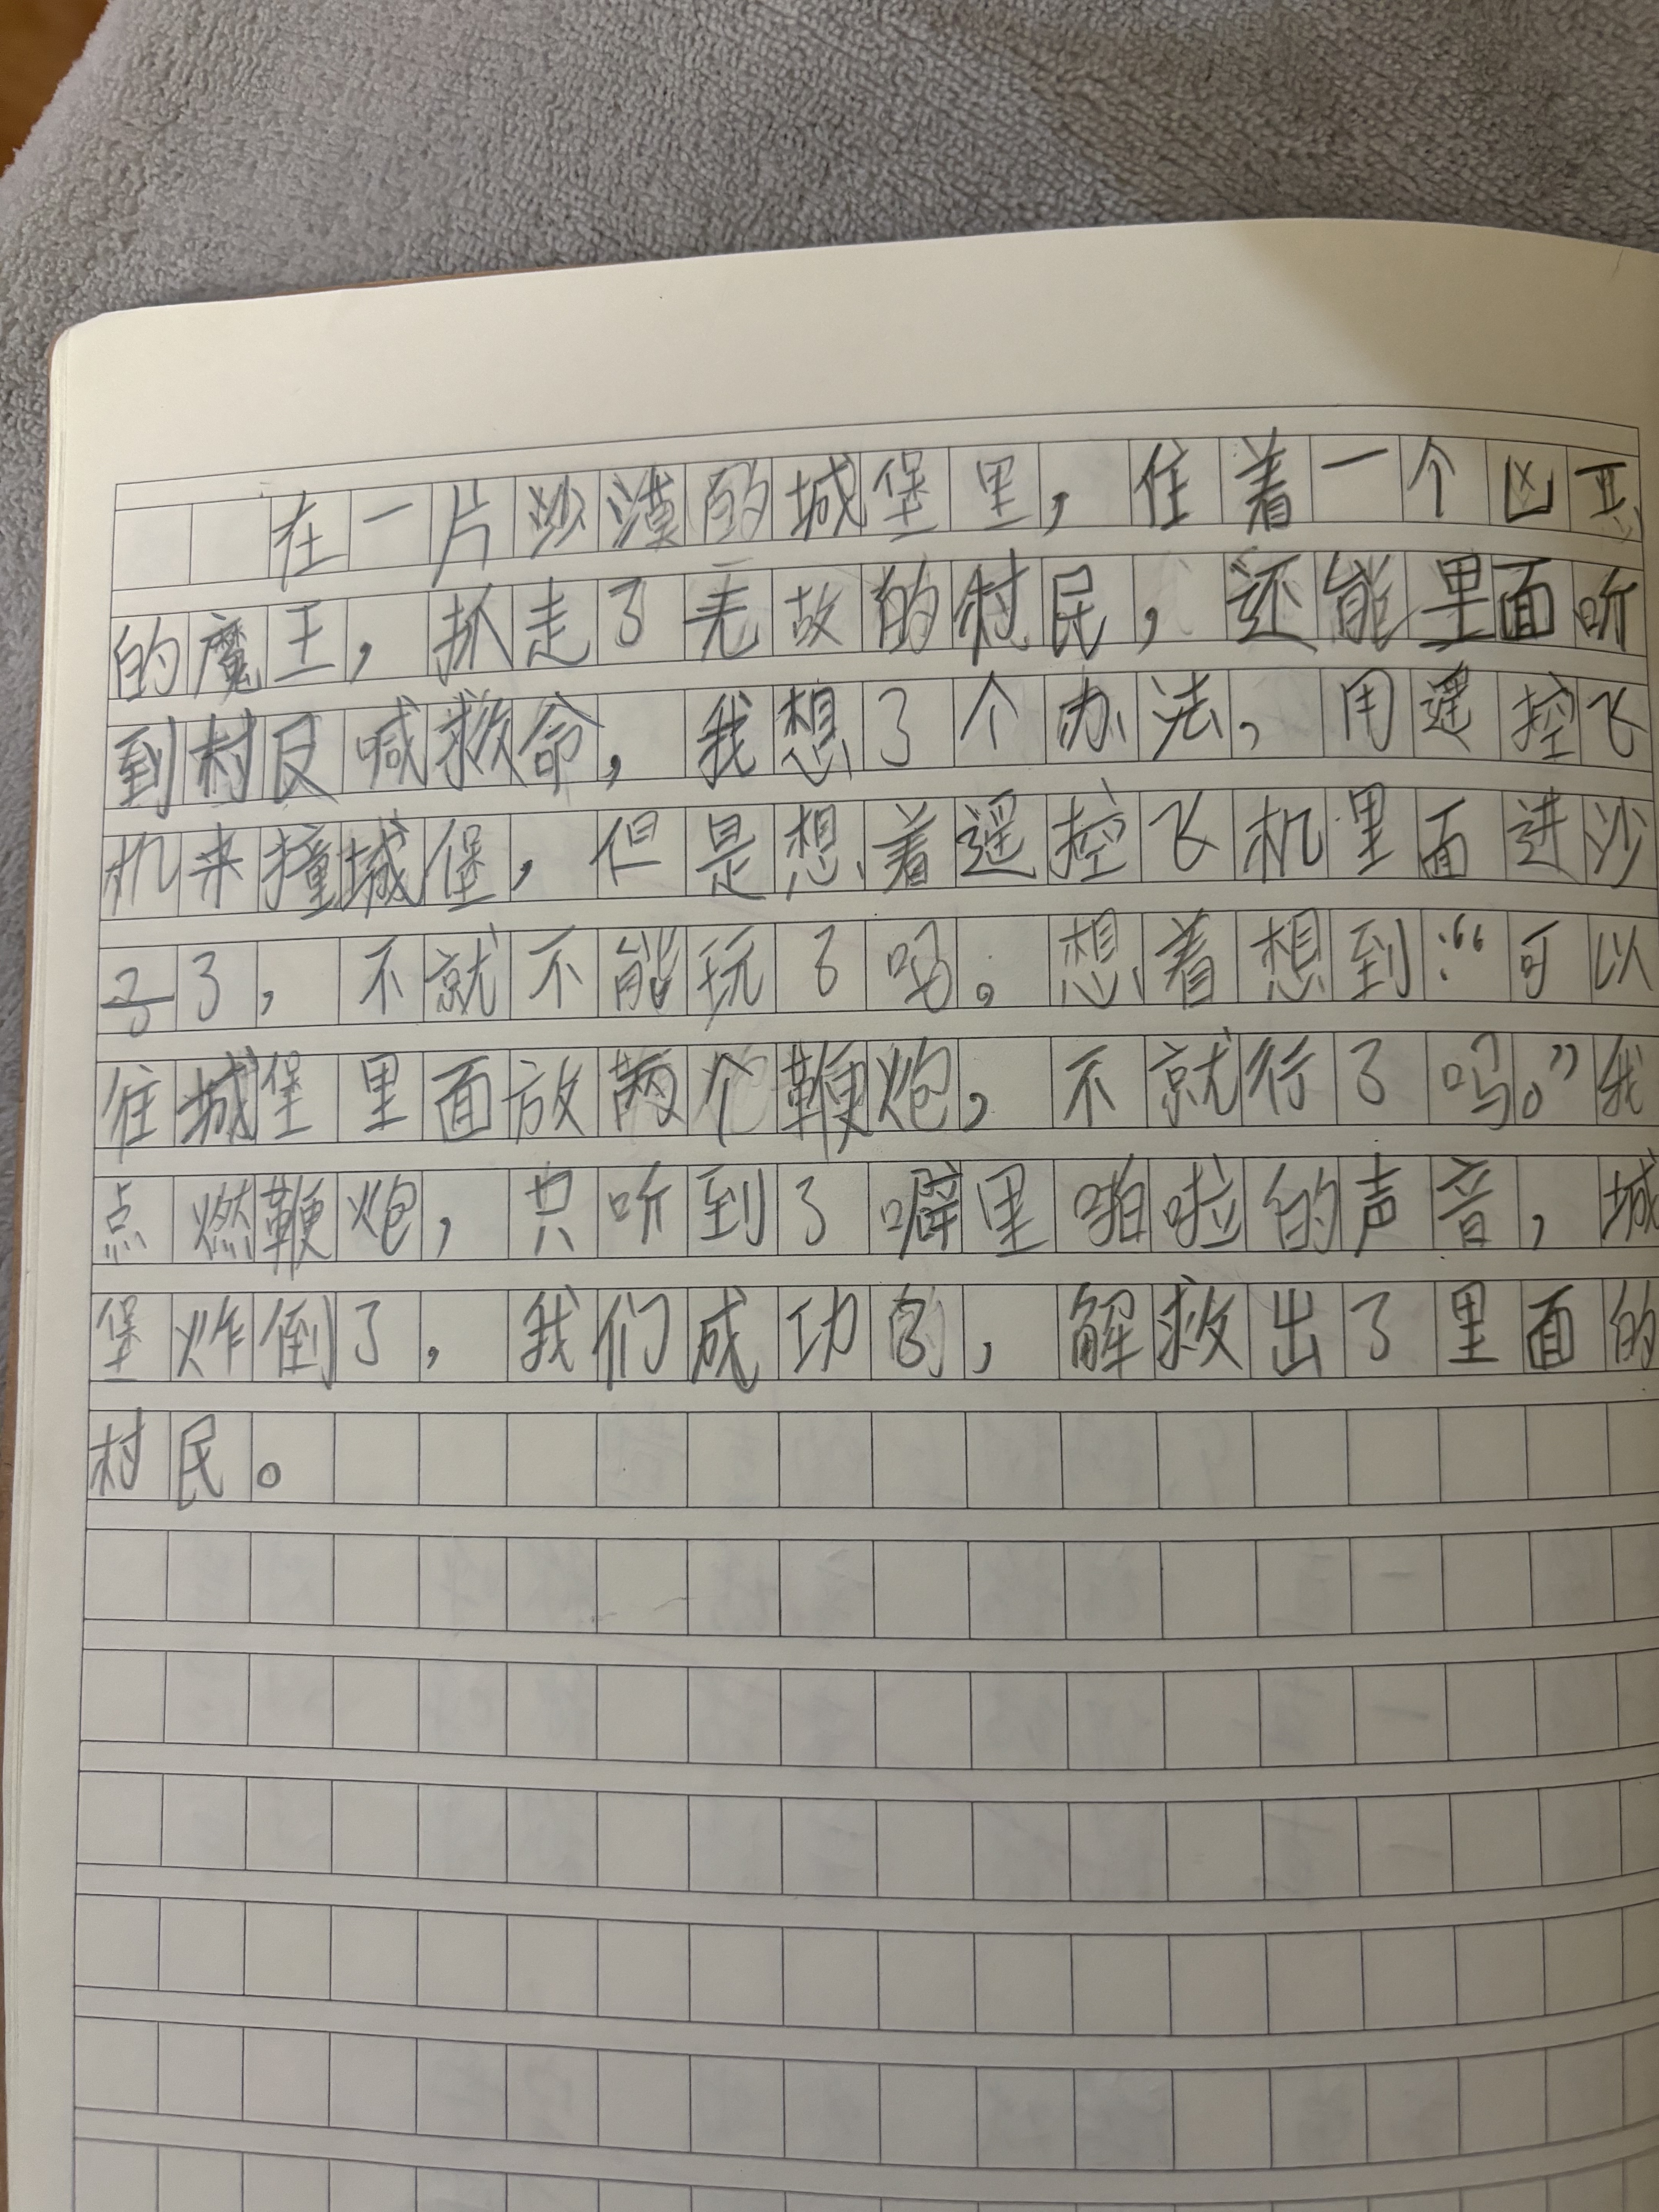 在一片沙漠的城堡里，住着一个凶恶
的魔王，抓走了无故的村民，还能里面听
到村民喊救命，我想了个办法，用遥控飞
机来撞城堡，但是想着遥控飞机里面进沙
子了，不就不能玩了吗。想着想到：“可以
往城堡里面放两个鞭炮，不就行了吗。”我
点燃鞭炮，只听到了噼里啪啦的声音，城
堡炸倒了，我们成功的，解救出了里面的
村民。